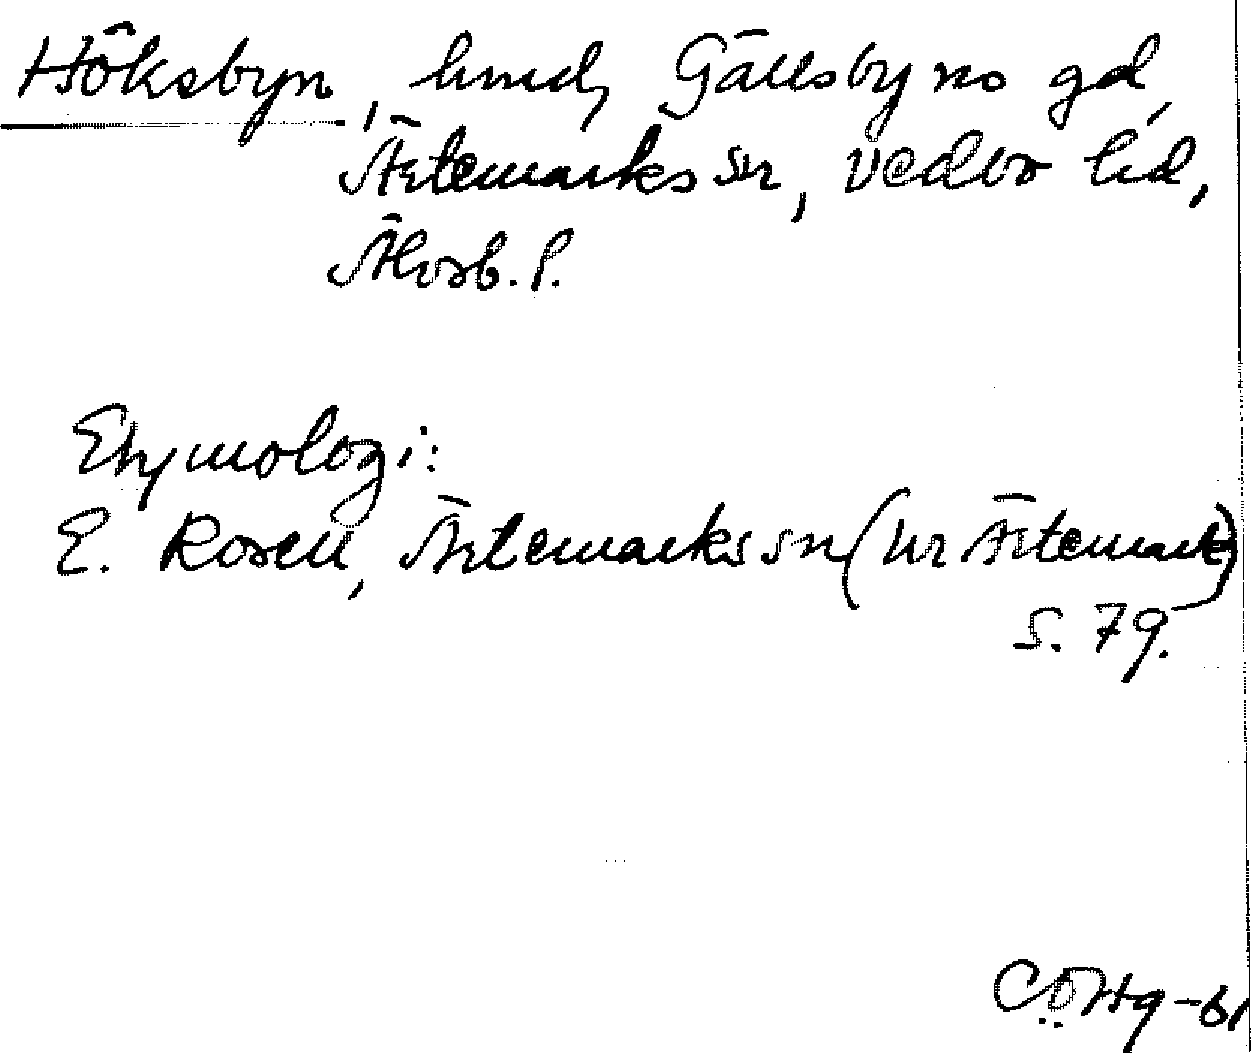 Höksbyn, hmd, Gällsbyns gd,
Ärtemarks sn, Vedbo hd,
Älvsb. l.
Etymologi:
E. Rosell, Ärtemarks sn (ur Ärtemark)
s. 79.
CÖHg -61